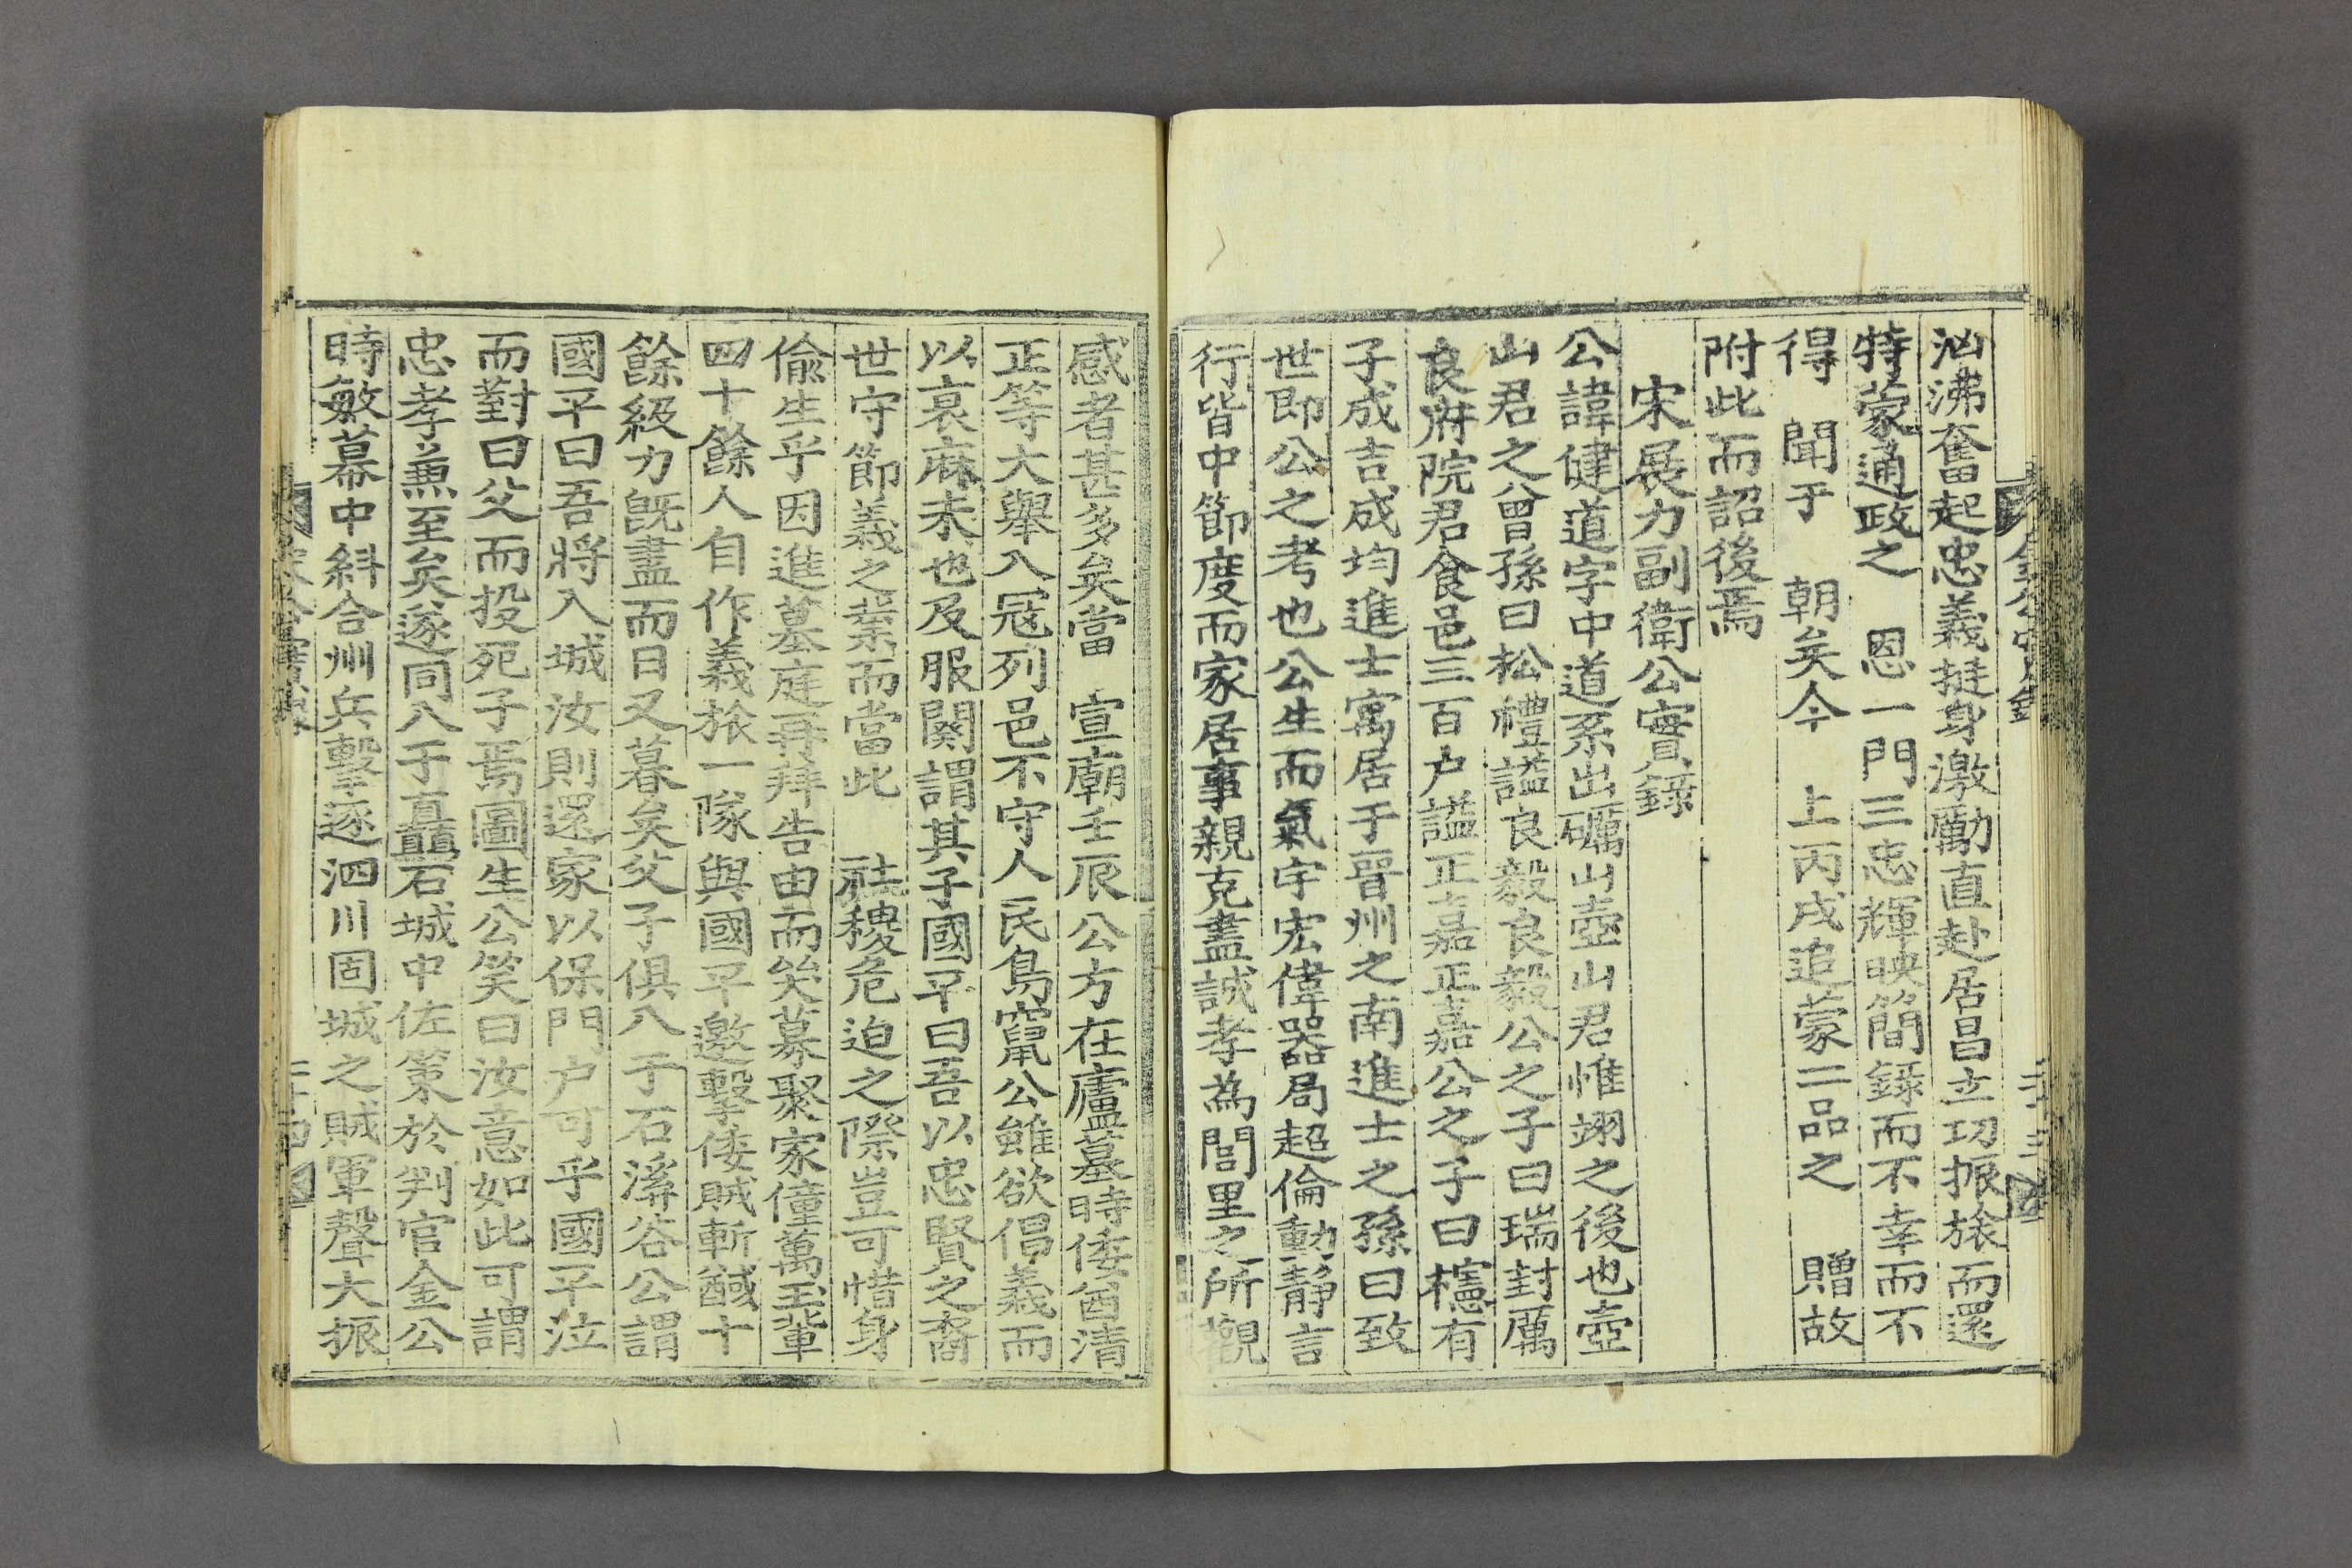 汹沸奮起忠義挺身激勵直赴居昌立功振旅而還
特蒙通政之 恩一門三忠輝映簡録而不幸而不
得 聞于 朝矣今 上丙戌追蒙二品之 贈故
附此而詔後焉
宋展力副衛公實錄
公諱健道字中道系出礪山壺山君惟翊之後也壺
山君之曾孫曰松禮謚良毅良毅公之子曰瑞封厲
良府院君食邑三百户謚正嘉正嘉公之子曰櫶有
子成吉成均進士寓居于晉州之南進士之孫曰致
世即公之考也公生而氣宇宏偉器局超倫動靜言
行皆中節度而家居事親克盡誠孝為閭里之所觀
感者甚多矣當 宣廟壬辰公方在廬墓時倭酋清
正等大舉入冦列邑不守人民鳥竄公雖欲倡義而
以哀麻未也及服闋謂其子國平曰吾以忠賢之裔
世守節義之業而當此 社稷危迫之際豈可惜身
偸生乎因進墓庭再拜告由而矣募聚家僮萬玉輩
四十餘人自作義旅一隊與國平邀擊倭賊斬馘十
餘級力旣盡而日又暮矣父子俱入于石溪谷公謂
國平曰吾將入城汝則還家以保門户可乎國平泣
而對曰父而投死子焉圖生公笑曰汝意如此可謂
忠孝兼至矣遂同入于矗石城中佐策於判官金公
時敏幕中斜合州兵擊逐泗川固城之賊軍聲大振